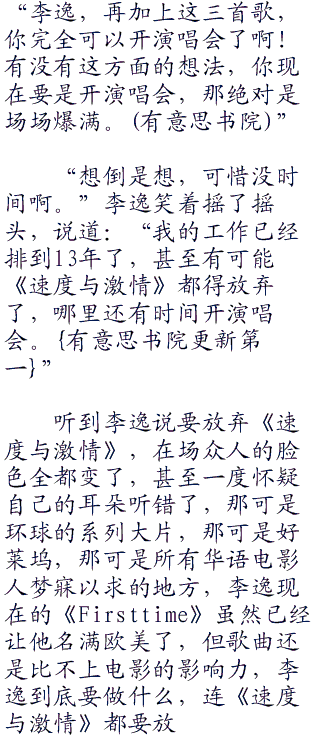 “李逸，再加上这三首歌，
你完全可以开演唱会了啊！
有没有这方面的想法，你现
在要是开演唱会，那绝对是
场场爆满。(有意思书院)”
“想倒是想，可惜没时
间啊。”李逸笑着摇了摇
头，说道：“我的工作已经
排到13年了，甚至有可能
《速度与激情》都得放弃
了，哪里还有时间开演唱
会。{有意思书院更新第
一}”
听到李逸说要放弃《速
度与激情》，在场众人的脸
色全都变了，甚至一度怀疑
自己的耳朵听错了，那可是
环球的系列大片，那可是好
莱坞，那可是所有华语电影
人梦寐以求的地方，李逸现
在的《Firsttime》虽然已经
让他名满欧美了，但歌曲还
是比不上电影的影响力，李
逸到底要做什么，连《速度
与激情》都要放